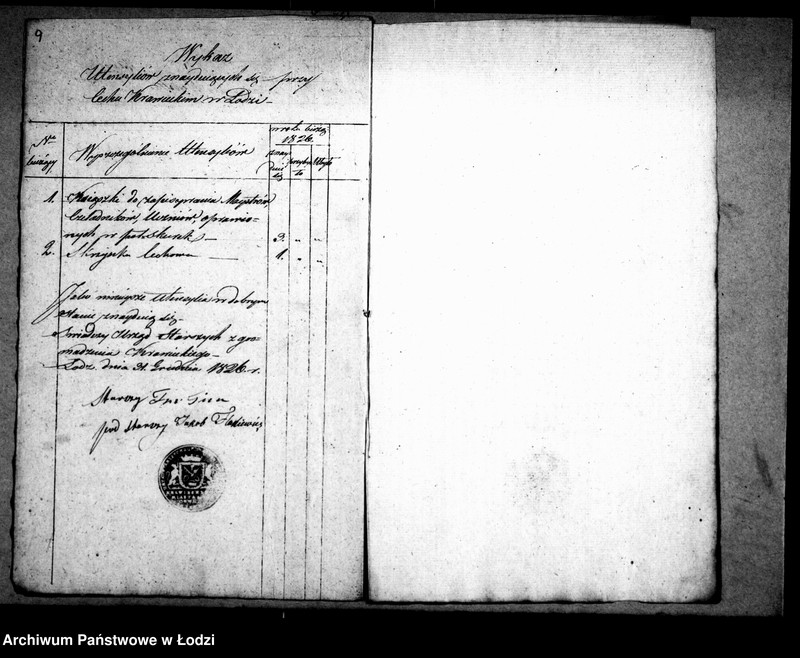 9
Wykaz
Utensyliów znayduiących się przy
Cechu Krawieckim w Łodzi
Nr
bieżący
Wyszczegulnienie Utensyliów
w rok bieżą
1826.
znay
duie
się
przyby
ło
Ubyło
1. Książki do zapisywania Maystrów
Czeladników, Uczniów, oprawio-
nych w pół Skurek — 3. „ „
2. Skrzynka Cechowa — 1. „ „
Jako ninieysze Utensylia w dobrym
stanie znayduią się
Świadczy Urząd Starszych zgro-
madzenia Krawieckiego
Łodz dnia 31. Grudnia 1826 r.
Starszy
pod starszy Jakob
Archiwum Państwowe w Łodzi